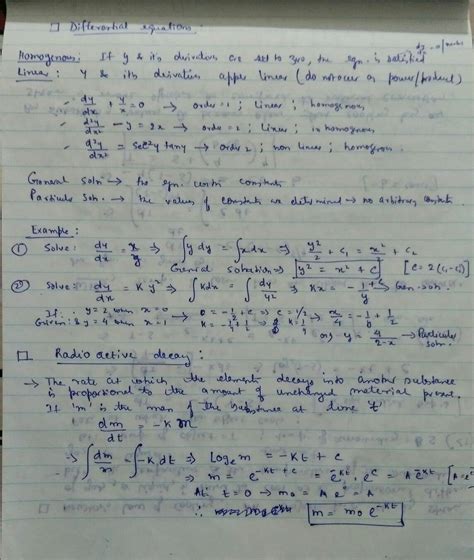 □ Differential equations:
Homogenous: If y & its derivatives are set to zero, the eqn. is satisfied
Linear: y & its derivatives appear linear (do not occur as power/product)
- dy/dx + y/x = 0 → order = 1 ; linear ; homogenous
- d²y/dx² - y = 2x → order = 2 ; linear ; in homogenous
- d²y/dx² = sec²y tany → order 2 ; non linear ; homogenous.
General soln → the eqn. contain constants
Particular soln. → the values of constants are determined → no arbitrary constants.
Example:
① Solve: dy/dx = x/y ⇒ ∫y dy = ∫x dx ⇒ y²/2 + C₁ = x²/2 + C₂
General solution ⇒ y² = x² + C [C = 2(C₂-C₁)]
② Solve: dy/dx = K y² ⇒ ∫K dx = ∫dy/y² ⇒ Kx = -1/y + C → Gen. soln.
If y = 2 when x = 0 → 0 = -1/2 + C ⇒ C = 1/2
Given: & y = 4 when x = 1 → K = -1/4 + 1/2 K = 1/4 ⇒ x/4 = -1/y + 1/2
or y = 4/2-x → Particular soln.
□ Radio active decay:
→ The rate at which the element decays into another substance
is proportional to the amount of unchanged material present.
If 'm' is the mass of the substance at time 't'
dm/dt = -K m
⇒ ∫dm/m = ∫-K dt ⇒ logₑ m = -Kt + C
⇒ m = e^-Kt + C = e^-Kt . e^C = A e^-Kt
At t = 0 → m₀ = A e⁰ = A
∴ m = m₀ e^-Kt